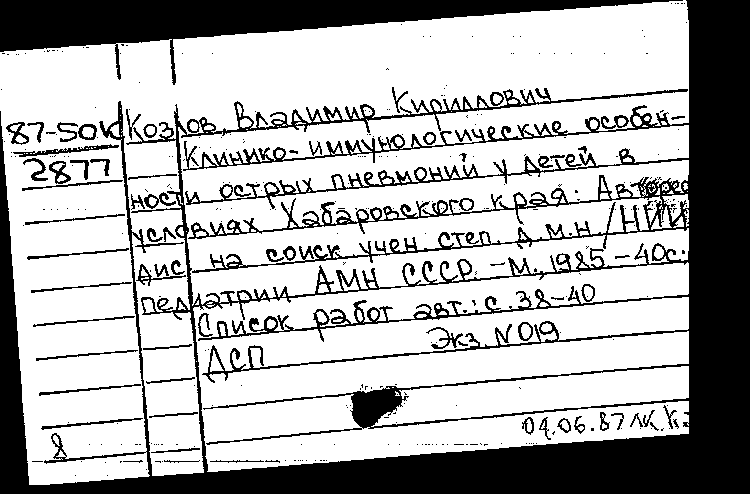 87-50К Козлов, Владимир Кириллович
2877 Клинико-иммунологические особен-
ности острых пневмоний у детей в
условиях Хабаровского края: Автореф
дис. на соиск. учен. степ. д.м.н./НИИ
педиатрии АМН СССР. -М., 1985.-40с.;
Список работ авт.: с. 38-40
ДСП Экз. N 019
04.06.87